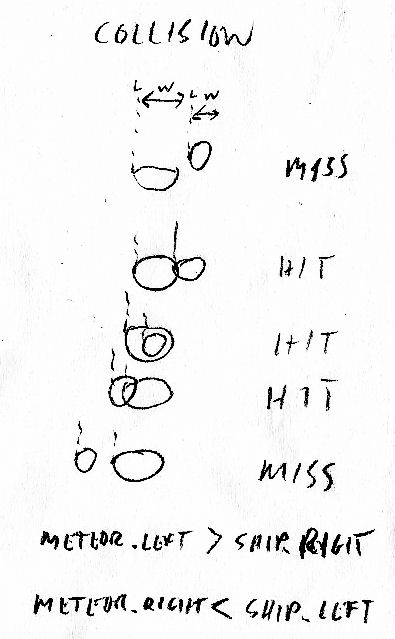 COLLISION
L W L W
MISS
HIT
HIT
HIT
MISS
METEOR.LEFT > SHIP.RIGHT
METEOR.RIGHT < SHIP.LEFT